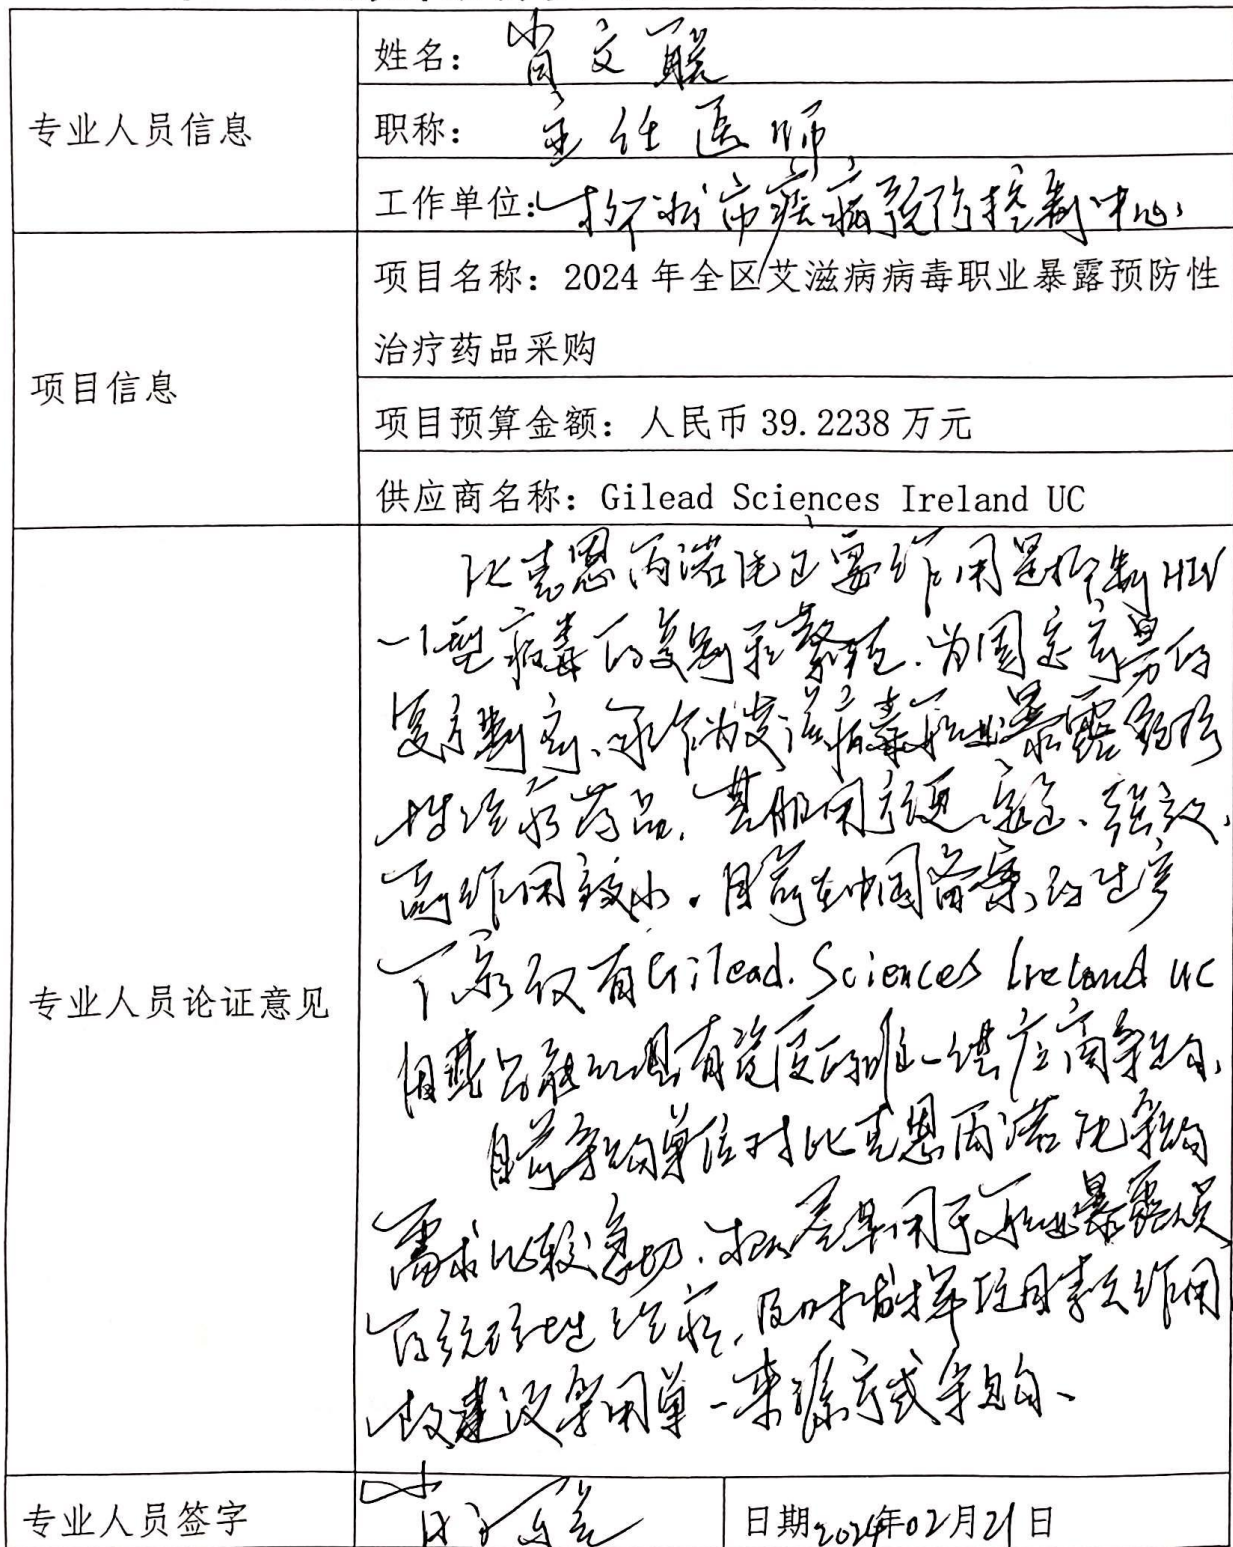 专业人员信息
姓名：肖文
职称：主任医师
工作单位：市疾病预防控制中心
项目信息
项目名称：2024 年全区艾滋病病毒职业暴露预防性
治疗药品采购
项目预算金额：人民币 39.2238 万元
供应商名称：Gilead Sciences Ireland UC
专业人员论证意见
比克恩丙诺片主要作用是抑制 HIV
-1型病毒的复制和繁殖.为固定剂量的
复方制剂、可作为艾滋病毒职业暴露预防
性治疗药品.其服用方便、安全、强效、
副作用较小。目前在中国备案的生产
厂家仅有 Gilead. Sciences Ireland UC
因此只能从具有资质的唯一供应商采购、
目前采购单位对比克恩丙诺片采购
需求比较急切.尽早用于职业暴露人员
的预防性治疗,及时发挥项目的作用
故建议采用单一来源方式采购、
专业人员签字
日期 2024年02月21日